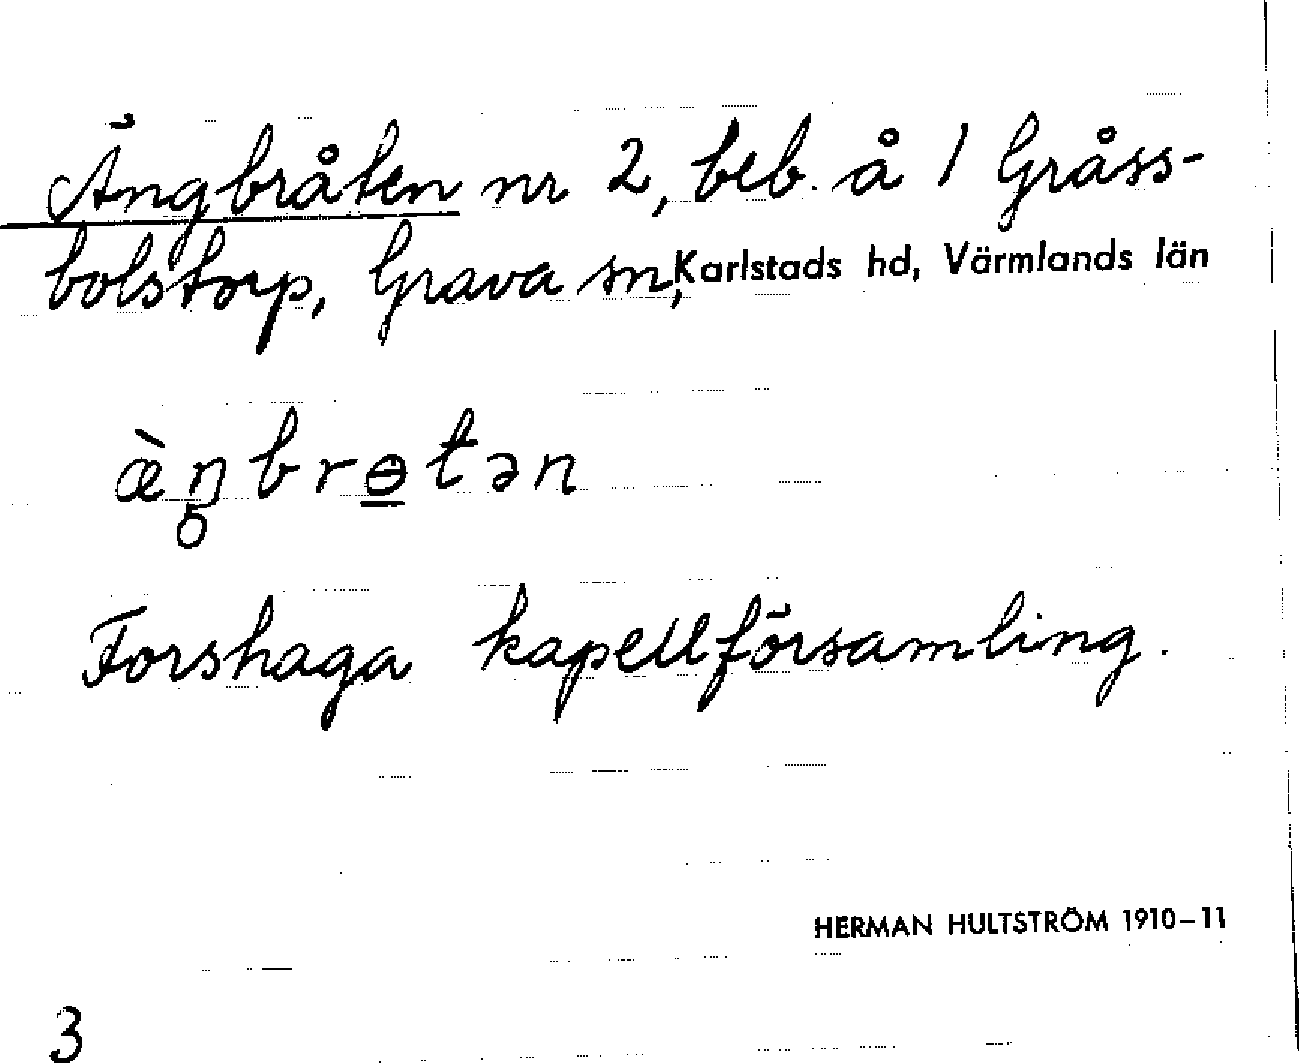 Ängbråten nr 2, beb. å 1 Gråss-
bolstorp, Grava sn, Karlstads hd, Värmlands län
æ̀ŋ̥brɵ̲tən
Forshaga kapellförsamling.
HERMAN HULTSTRÖM 1910–11
3